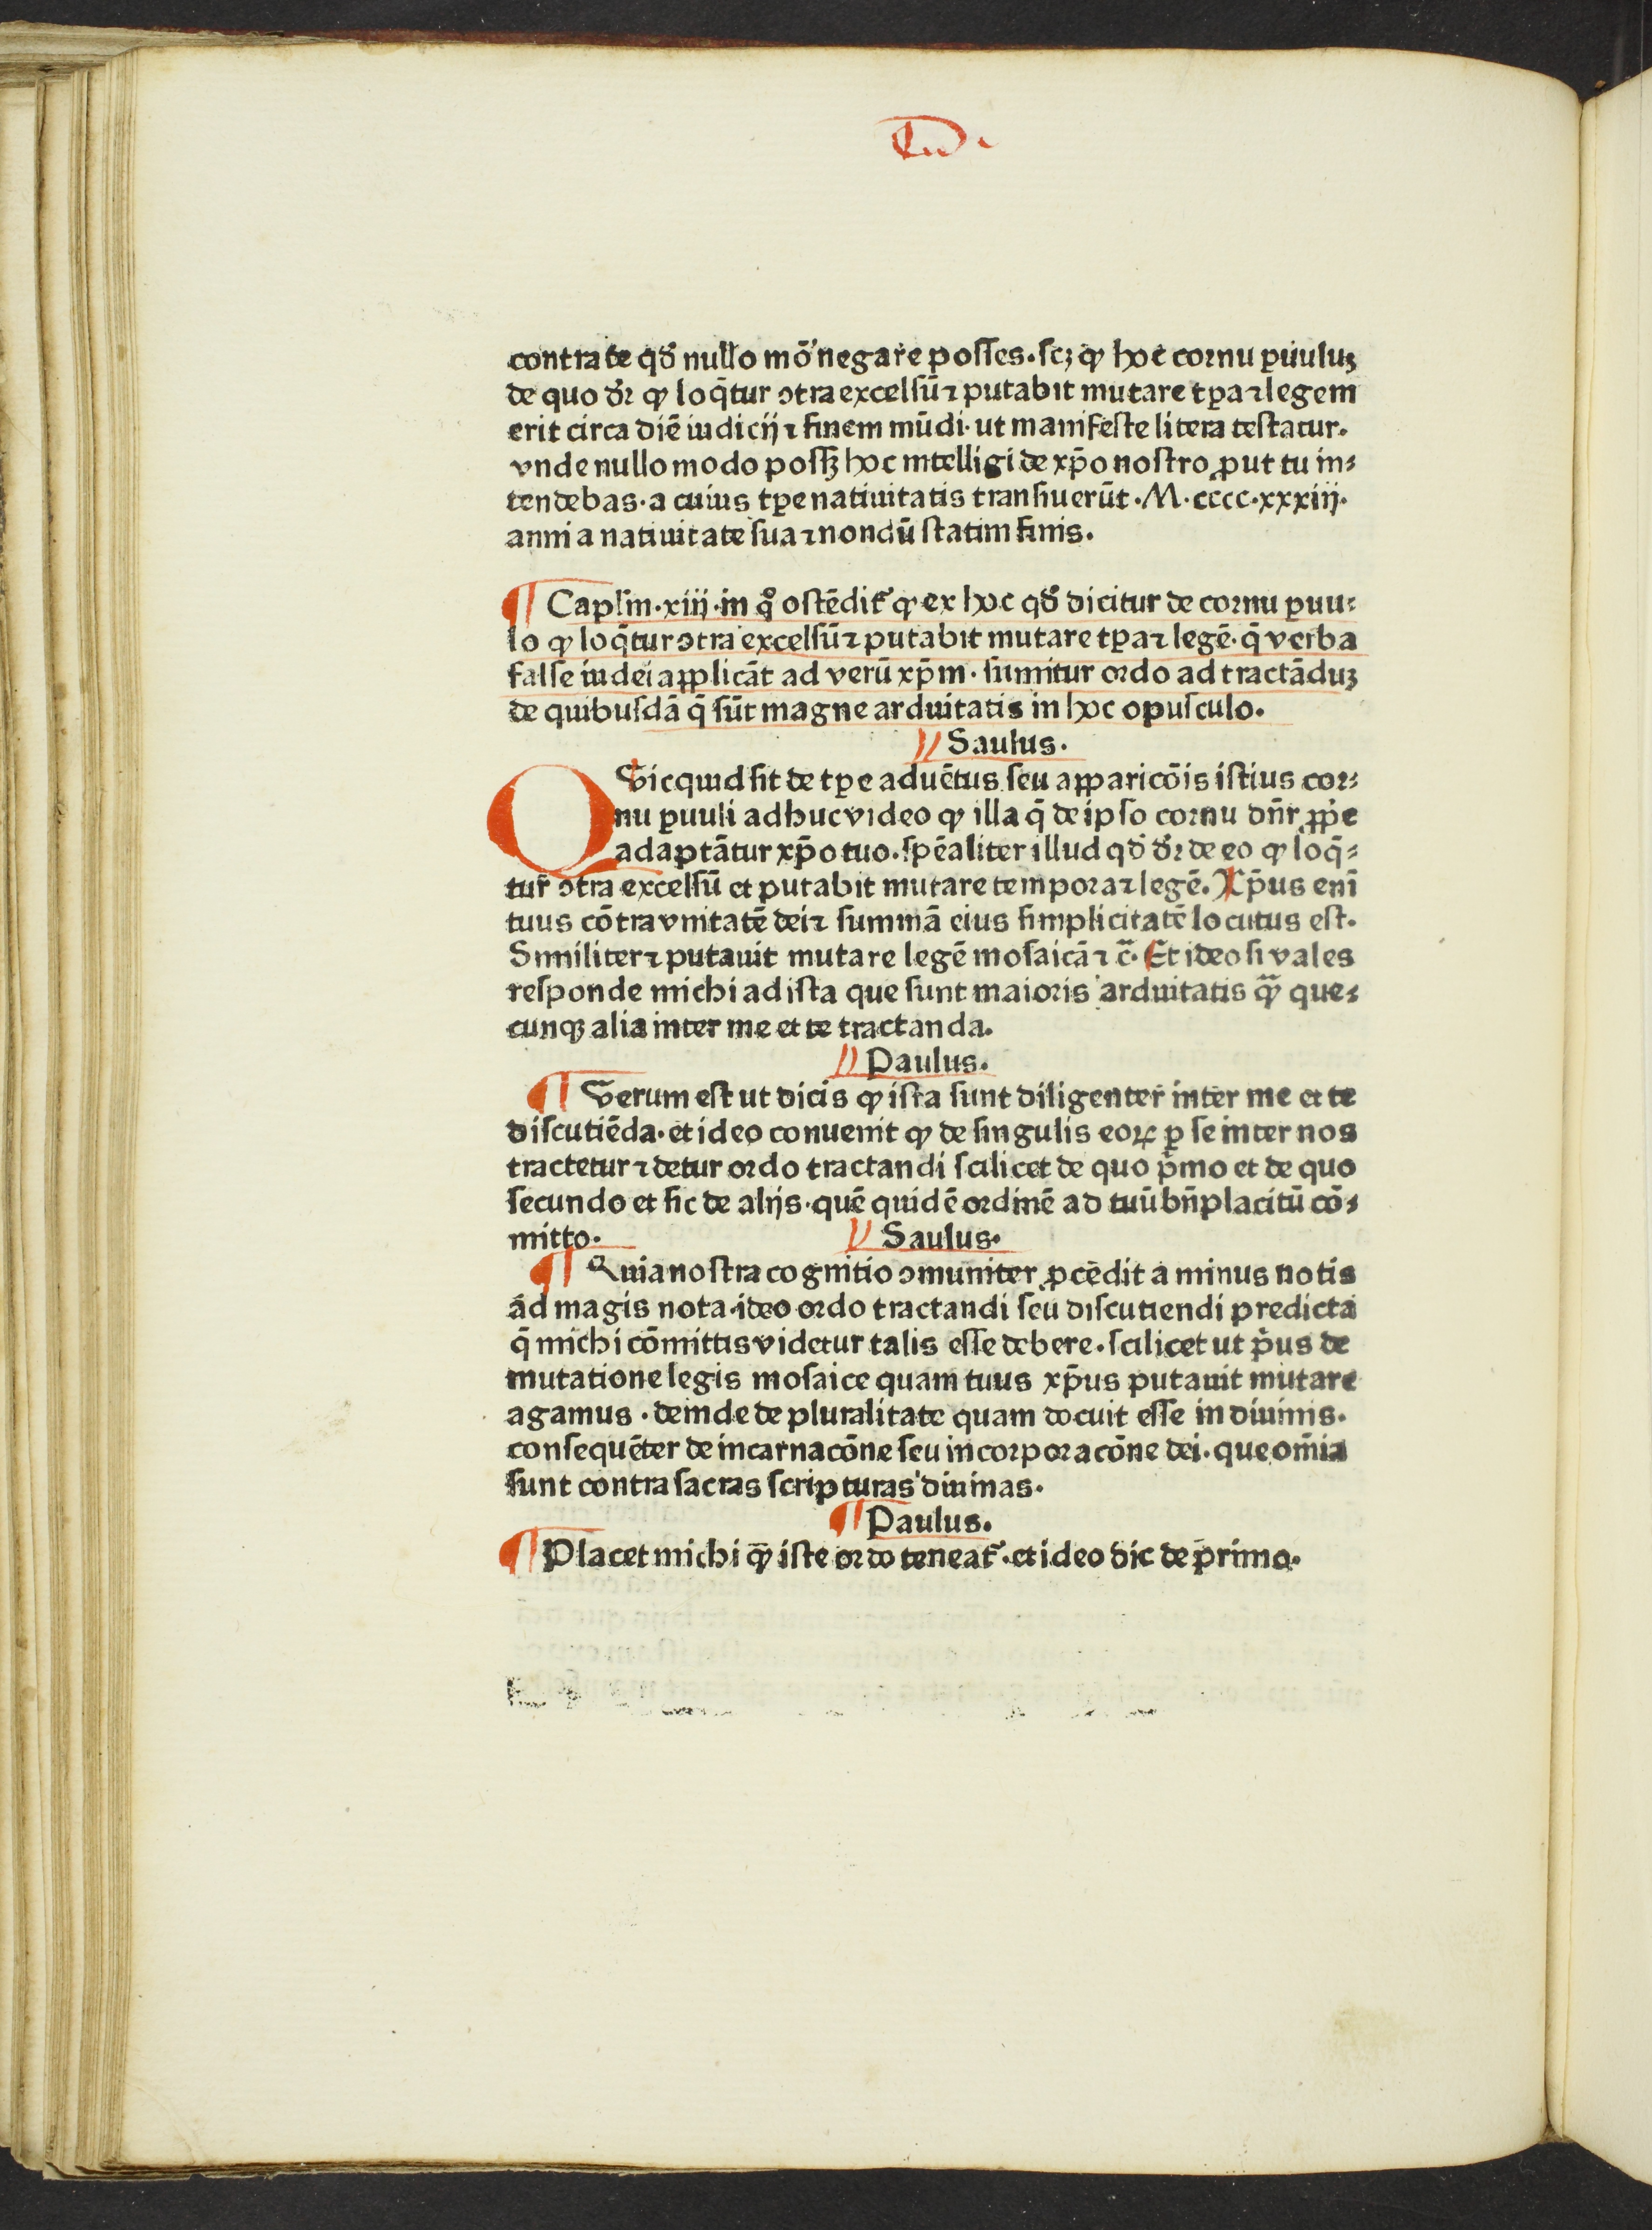 contra te qđ nullo mō negare posses. scꝫ ꝙ hoc cornu ꝑuuluꝫ
de quo dr̄ ꝙ loq̄tur ↄtra excelsū ⁊ putabit mutare tꝑa ⁊ legem
erit circa diē iudicij ⁊ finem mūdi. ut manifeste litera testatur.
vnde nullo modo possꝫ hoc intelligi de xp̄o nostro ꝓut tu in-
tendebas. a cuius tꝑe natiuitatis transiuerūt. M. cccc. xxxiij.
anni a natiuitate sua ⁊ nondū statim finis.
¶ Capl̄m. xiij. in qͦ ostēdit᷑ ꝙ ex hoc qđ dicitur de cornu ꝑuu-
lo ꝙ loq̄tur ↄtra excelsū ⁊ putabit mutare tꝑa ⁊ legē. q̄ verba
false iudei applicāt ad verū xp̄m. sumitur ordo ad tractāduꝫ
de quibusdā q̄ sūt magne arduitatis in hoc opusculo.
Saulus.
QVicquid sit de tꝑe aduētus seu apparicōis istius cor-
nu ꝑuuli adhuc video ꝙ illa q̄ de ipso cornu dn̄r ꝓpe
adaptātur xp̄o tuo. spēaliter illud qđ dr̄ de eo ꝙ loq̄-
tur ↄtra excelsū et putabit mutare tempora ⁊ legē. Xp̄us enī
tuus cōtra vnitatē dei ⁊ summā eius simplicitatē locutus est.
Similiter ⁊ putauit mutare legē mosaicā ⁊ c̄. Et ideo si vales
responde michi ad ista que sunt maioris arduitatis qꝫ̄ que-
cunqꝫ alia inter me et te tractanda.
Paulus.
¶ Verum est ut dicis ꝙ ista sunt diligenter inter me et te
discutiēda. et ideo conuenit ꝙ de singulis eoꝝ ꝑ se inter nos
tractetur ⁊ detur ordo tractandi scilicet de quo p̄mo et de quo
secundo et sic de alijs. quē quidē ordinē ad tuū bn̄placitū cō-
mitto. Saulus.
¶ Quia nostra cognitio ↄmuniter ꝓcēdit a minus notis
ad magis nota. ideo ordo tractandi seu discutiendi predicta
q̄ michi cōmittis videtur talis esse debere. scilicet ut p̄us de
mutatione legis mosaice quam tuus xp̄us putauit mutare
agamus. deinde de pluralitate quam docuit esse in diuinis.
consequēter de incarnacōne seu incorporacōne dei. que om̄ia
sunt contra sacras scripturas diuinas.
¶ Paulus.
¶ Placet michi qꝫ̄ iste ordo teneat᷑. et ideo dic de primo.